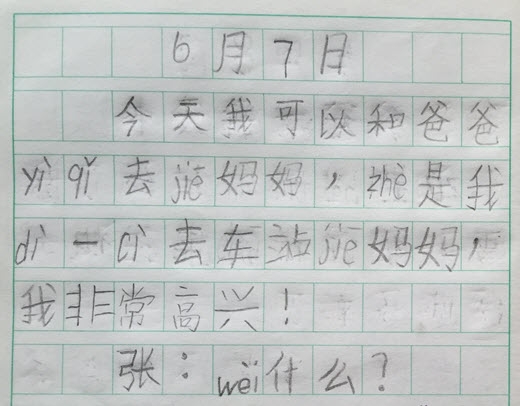 6月7日
今天我可以和爸爸
yì qǐ 去 jiē 妈妈，zhè 是我
dì 一 cì 去车站 jiē 妈妈，
我非常高兴！
张：wèi 什么？